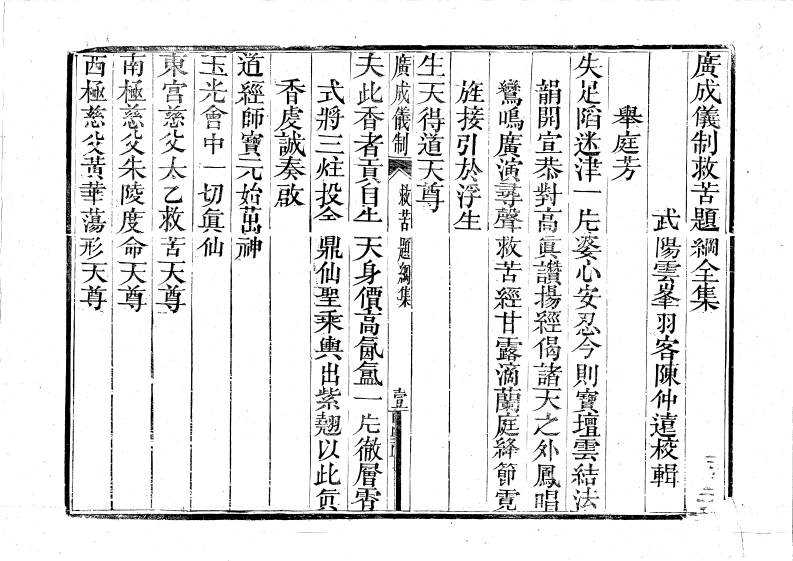 廣成儀制救苦題綱全集
武陽雲峯羽客陳仲遠校輯
舉庭芳
失足陷迷津一片婆心安忍今則寶壇雲結法
韻開宣恭對高眞讚揚經偈諸天之外鳳唱
鸞鳴廣演尋聲救苦經甘露滴蘭庭絳節霓
旌接引於浮生
生天得道天尊
廣成儀制 救苦題綱集 壹
夫此香者貢自生天身價高氤氳一片徹層霄
式將三炷投金鼎仙聖乘輿出紫翹以此眞
香虔誠奏啟
道經師寶元始萬神
玉光會中一切眞仙
東宮慈父太乙救苦天尊
南極慈父朱陵度命天尊
西極慈父黃華蕩形天尊